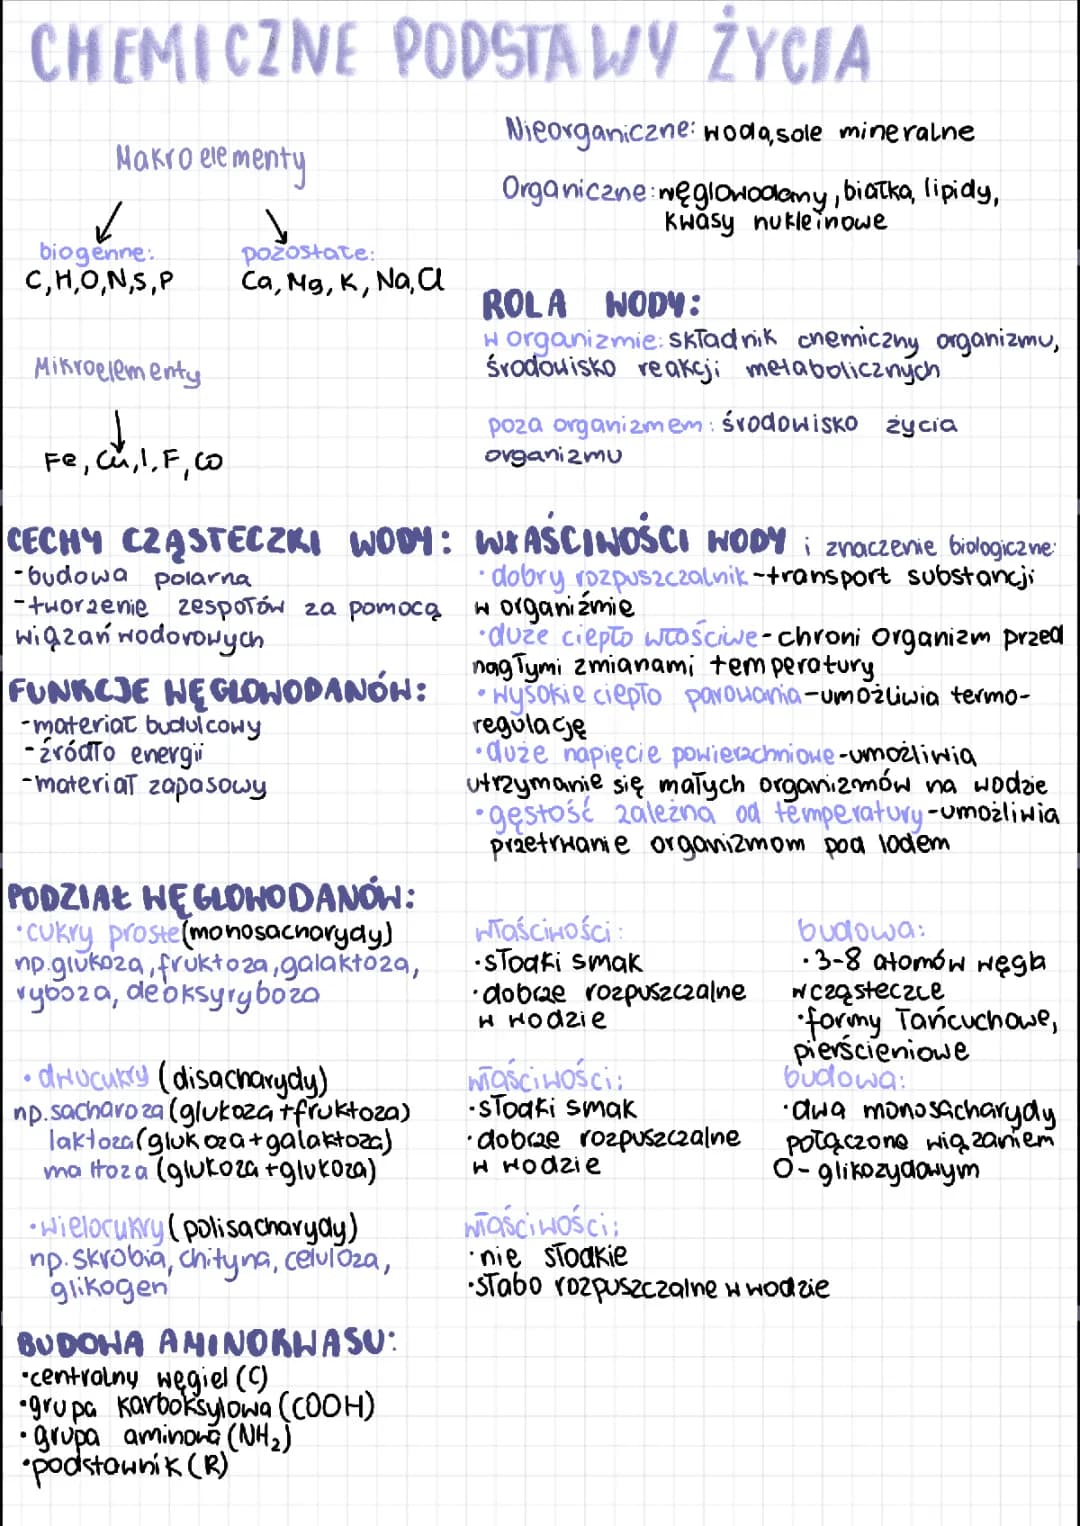 CHEMICZNE PODSTAWY ŻYCIA
Makroelementy
biogenne:
C,H,O,N,S,P
pozostałe:
Ca, Mg, K, Na, Cl
Mikroelementy
Fe, Cu, I, F, Co
Nieorganiczne: woda, sole mineralne
Organiczne: węglowodany, białka, lipidy,
kwasy nukleinowe
ROLA WODY:
w organizmie: składnik chemiczny organizmu,
środowisko reakcji metabolicznych
poza organizmem: środowisko życia
organizmu
CECHY CZĄSTECZKI WODY:
-budowa polarna
-tworzenie zespołów za pomocą
wiązań wodorowych
FUNKCJE WĘGLOWODANÓW:
-materiał budulcowy
-źródło energii
-materiał zapasowy
WŁAŚCIWOŚCI WODY i znaczenie biologiczne:
•dobry rozpuszczalnik-transport substancji
w organiźmie
•duże ciepło właściwe-chroni organizm przed
nagłymi zmianami temperatury
•wysokie ciepło parowania-umożliwia termo-
regulację
•duże napięcie powierzchniowe-umożliwia
utrzymanie się małych organizmów na wodzie
•gęstość zależna od temperatury-umożliwia
przetrwanie organizmom pod lodem
PODZIAŁ WĘGLOWODANÓW:
•cukry proste (monosacharydy)
np.glukoza, fruktoza, galaktoza,
ryboza, deoksyryboza
właściwości:
•słodki smak
•dobrze rozpuszczalne
w wodzie
budowa:
•3-8 atomów węgla
w cząsteczce
•formy łańcuchowe,
pierścieniowe
•dwucukry (disacharydy)
np.sacharoza (glukoza+fruktoza)
laktoza (glukoza+galaktoza)
maltoza (glukoza+glukoza)
właściwości:
•słodki smak
•dobrze rozpuszczalne
w wodzie
budowa:
•dwa monosacharydy
połączone wiązaniem
O-glikozydowym
•wielocukry (polisacharydy)
np. skrobia, chityna, celuloza,
glikogen
właściwości:
•nie słodkie
•słabo rozpuszczalne w wodzie
BUDOWA AMINOKWASU:
•centralny węgiel (C)
•grupa karboksylowa (COOH)
•grupa aminowa (NH₂)
•podstawnik (R)